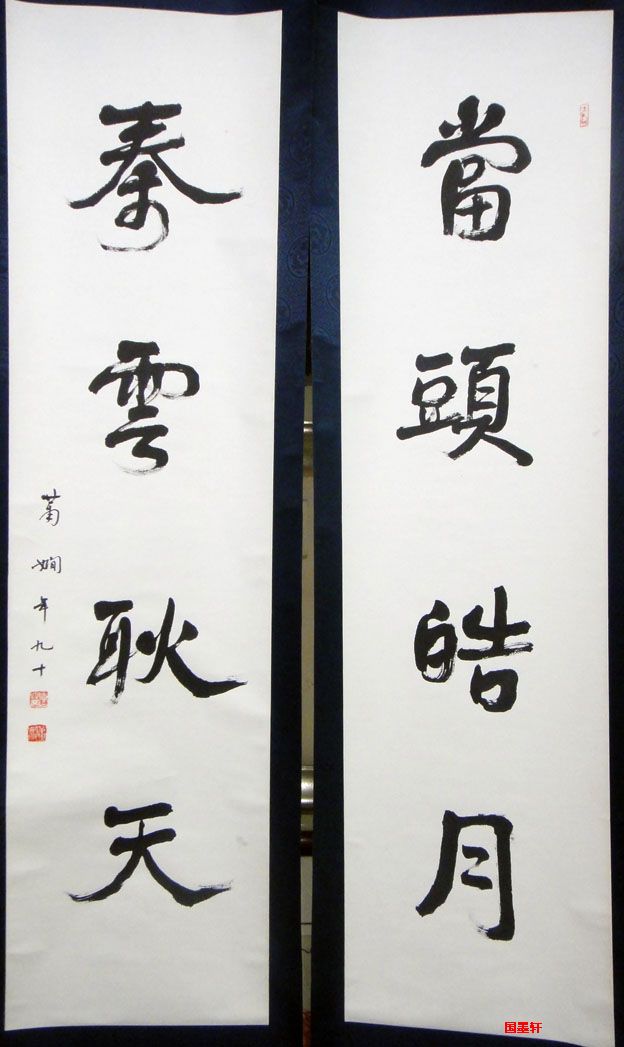 當頭皓月
秦雲耿天
蕭嫻年九十
国墨轩